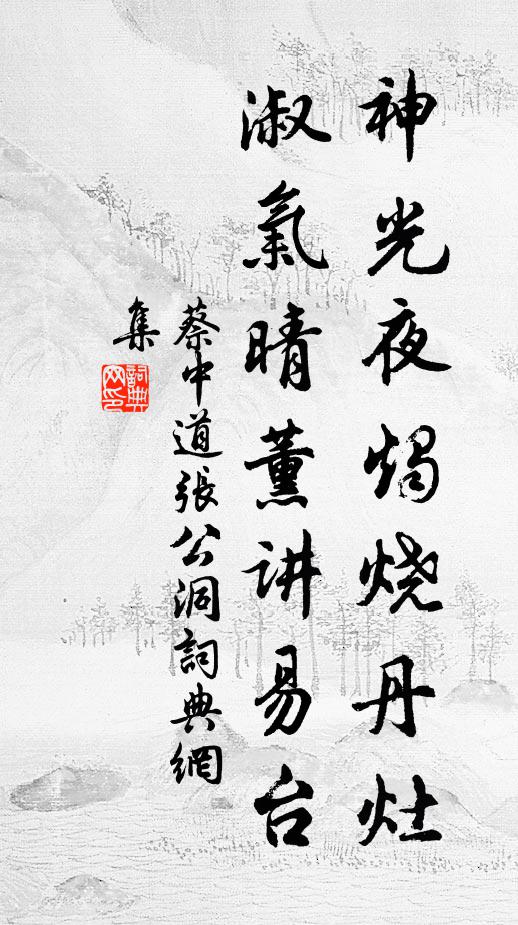 神光夜烛烧丹灶
淑氣晴薰讲易台
蔡中道張公洞詞典網
集
詞典網印